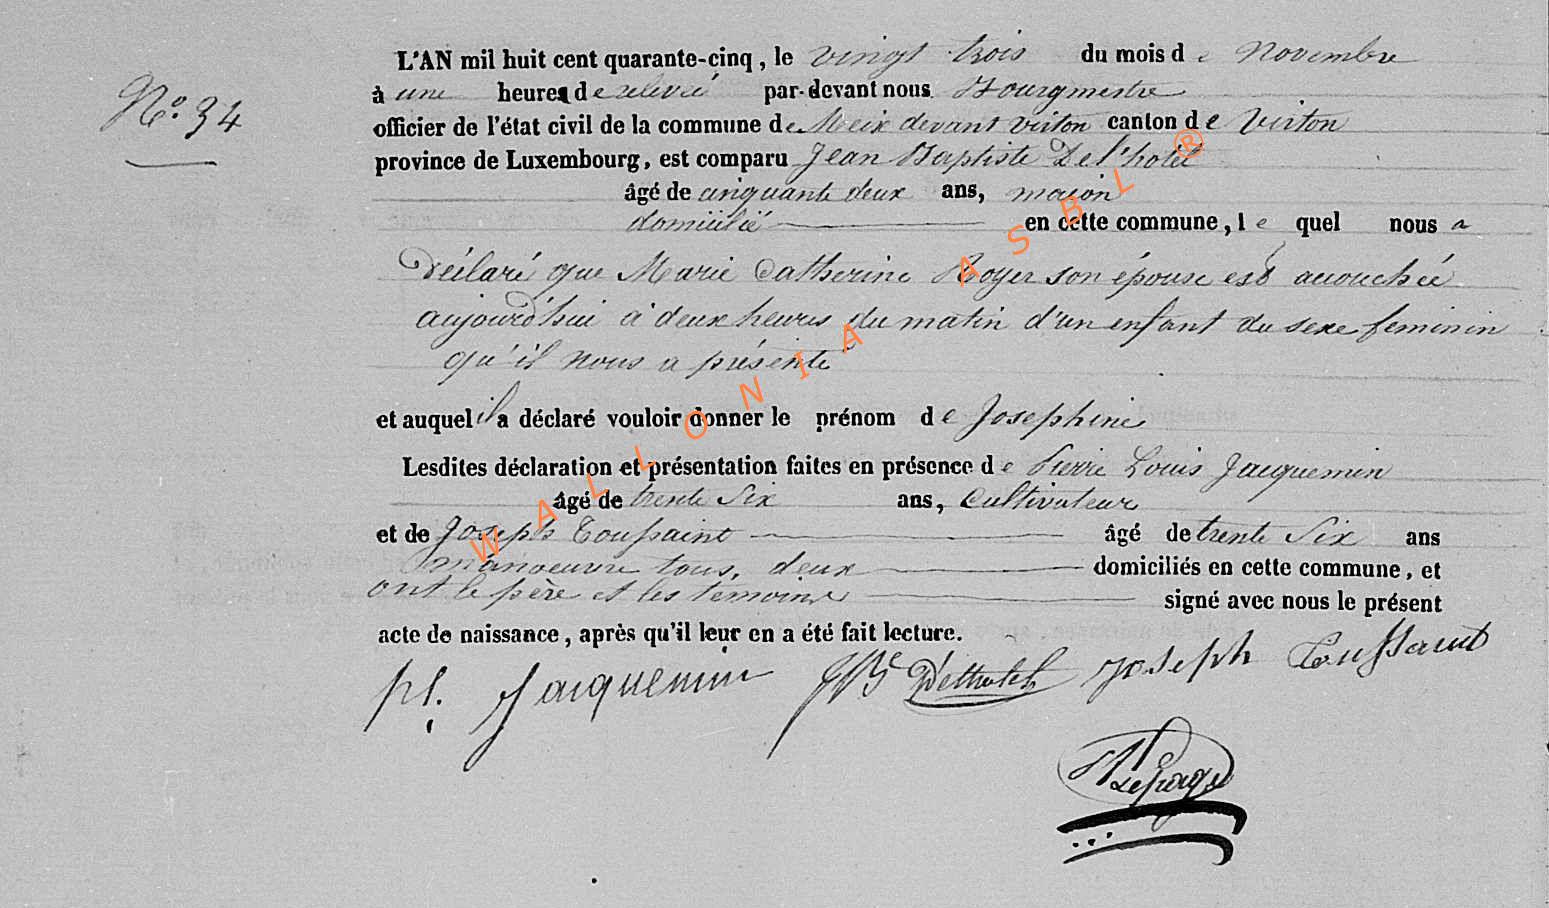 N.o 34
L'AN mil huit cent quarante-cinq, le vingt trois du mois de Novembre
à une heure de relevée par-devant nous Bourgmestre
officier de l'état civil de la commune de Meix devant virton canton de Virton
province de Luxembourg, est comparu Jean Baptiste Delhotel
âgé de cinquante deux ans, maçon
domicilié en cette commune, le quel nous a
Déclaré que Marie Catherine Royer son épouse est accouchée
aujourd'hui à deux heures du matin d'un enfant du sexe feminin
qu'il nous a présenté
et auquel il a déclaré vouloir donner le prénom de Josephine
Lesdites déclaration et présentation faites en présence de Pierre Louis Jacquemin
âgé de trente Six ans, Cultivateur
et de Joseph Toussaint âgé de trente Six ans
manoeuvre tous deux domiciliés en cette commune, et
ont le père et les temoins signé avec nous le présent
acte de naissance, après qu'il leur en a été fait lecture.
pl. Jacquemin JB Delhotel Joseph Toussaint
Lepage
WALLONIA ASBL ®